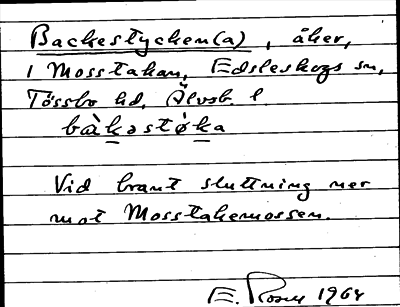 Backestycken(a), åker,
i Mosstakan, Edsleskogs sn,
Tössbo hd, Älvsb l.
bàkastøka
Vid brant sluttning ner
mot Mosstakemossen.
E. Rosell 1964